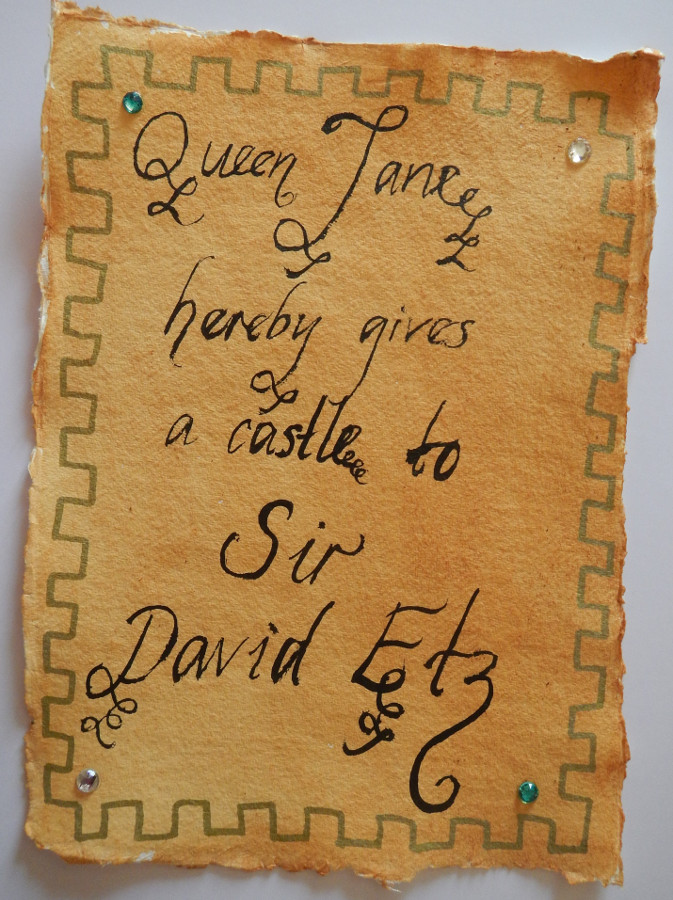 Queen Jane
hereby gives
a castle to
Sir
David Etz